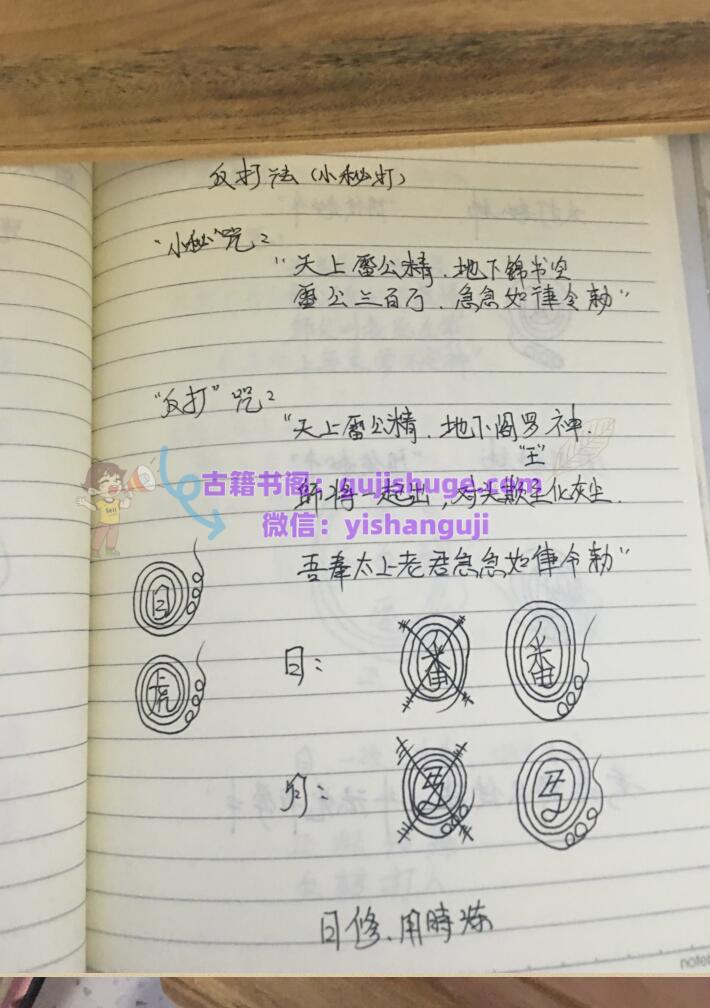 反打法（小秘打）
"小秘"咒：
"天上雷公精．地下錦书
雷公三百万．急急如律令勅"
"反打"咒：
"天上雷公精．地下阎罗神．
"王"
古籍书阁：gujishuge.com
师将一起出，对头欺主化灰尘．
微信：yishanguji
吾奉太上老君急急如律令勅"
日
日： 番 番
虎
月：
日修、用時炼